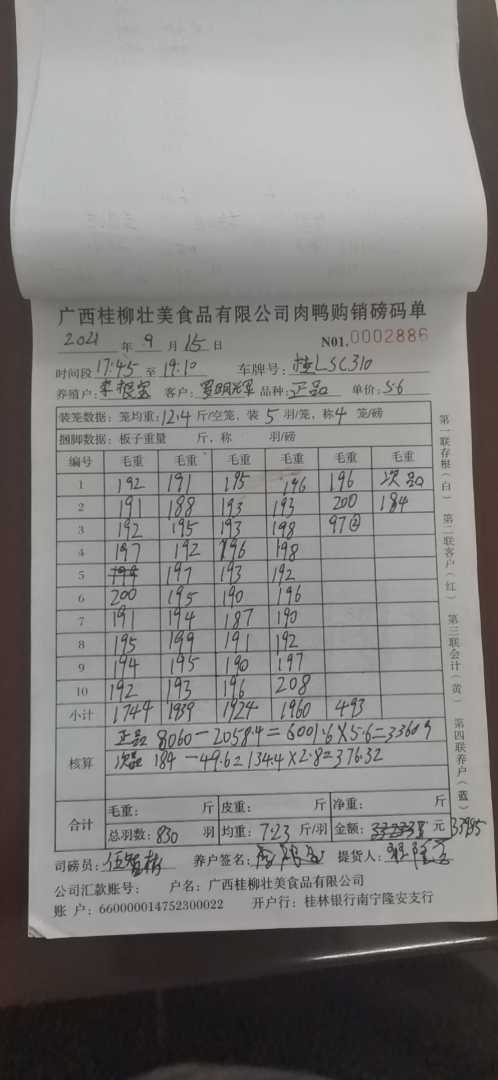 广西桂柳壮美食品有限公司肉鸭购销磅码单
2021 年 9 月 15 日 N01.0002886
时间段 17:45 至 19:10 车牌号: 桂LSC310
养殖户: 客户: 品种: 正品 单价: 5.6
装笼数据: 笼均重: 12.4 斤/空笼, 装 5 羽/笼, 称 4 笼/磅
捆脚数据: 板子重量 斤, 称 羽/磅
编号 毛重 毛重 毛重 毛重 毛重 毛重
1 192 191 195 196 196 次品
2 191 188 193 193 200 184
3 192 195 193 198 97②
4 197 192 196 198
5 197 193 192
6 200 195 190 196
7 191 194 187 190
8 195 199 191 192
9 194 195 190 197
10 192 193 196 208
小计 1744 1939 1924 1960 493
核算 正品 8060-2058.4=6001.6×5.6=33609
次品 184-49.6=134.4×2.8=376.32
合计 毛重: 斤 皮重: 斤 净重: 斤
总羽数: 830 羽 均重: 7.23 斤/羽 金额: 元 33985
司磅员: 养户签名: 提货人:
公司汇款账号: 户名: 广西桂柳壮美食品有限公司
账 户: 660000014752300022 开户行: 桂林银行南宁隆安支行
第一联存根(白) 第二联客户(红) 第三联会计(黄) 第四联养户(蓝)